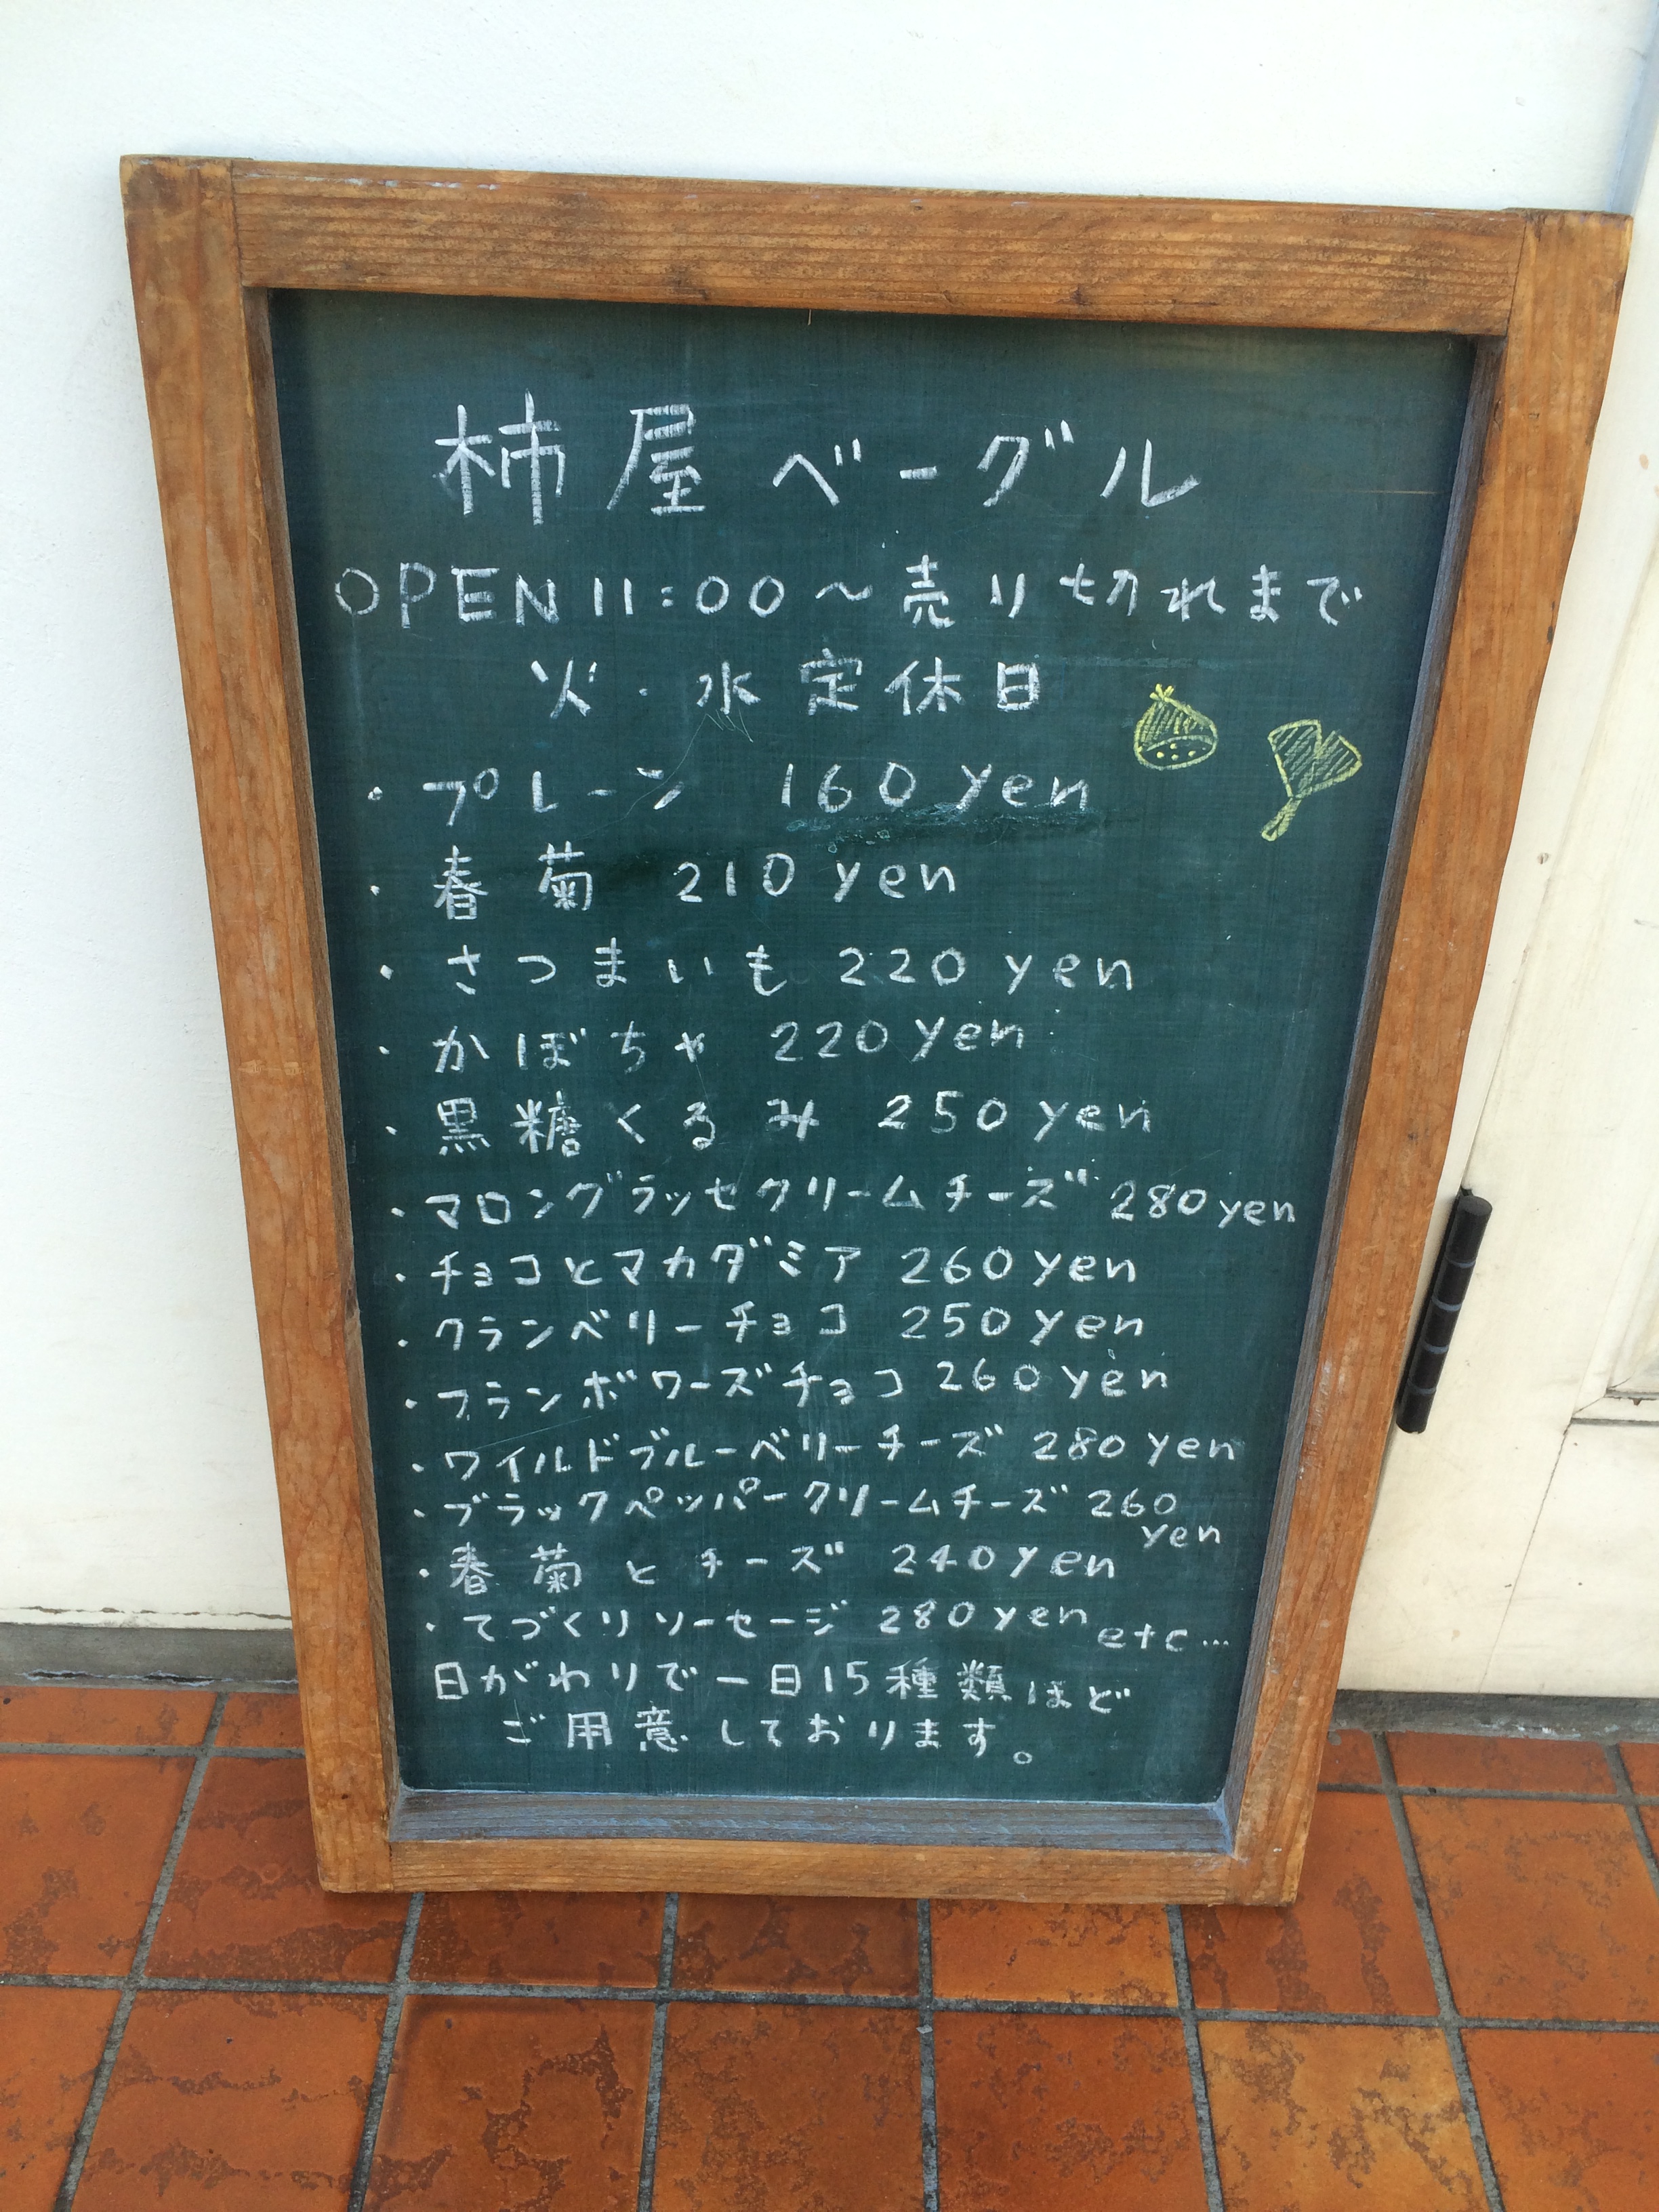 柿屋ベーグル
OPEN 11:00〜売り切れまで
火・水 定休日
・プレーン 160 yen
・春菊 210 yen
・さつまいも 220 yen
・かぼちゃ 220 yen
・黒糖くるみ 250 yen
・マロングラッセクリームチーズ 280 yen
・チョコとマカダミア 260 yen
・クランベリーチョコ 250 yen
・フランボワーズチョコ 260 yen
・ワイルドブルーベリーチーズ 280 yen
・ブラックペッパークリームチーズ 260
yen
・春菊とチーズ 240 yen
・てづくりソーセージ 280 yen etc…
日がわりで一日15種類ほど
ご用意しております。